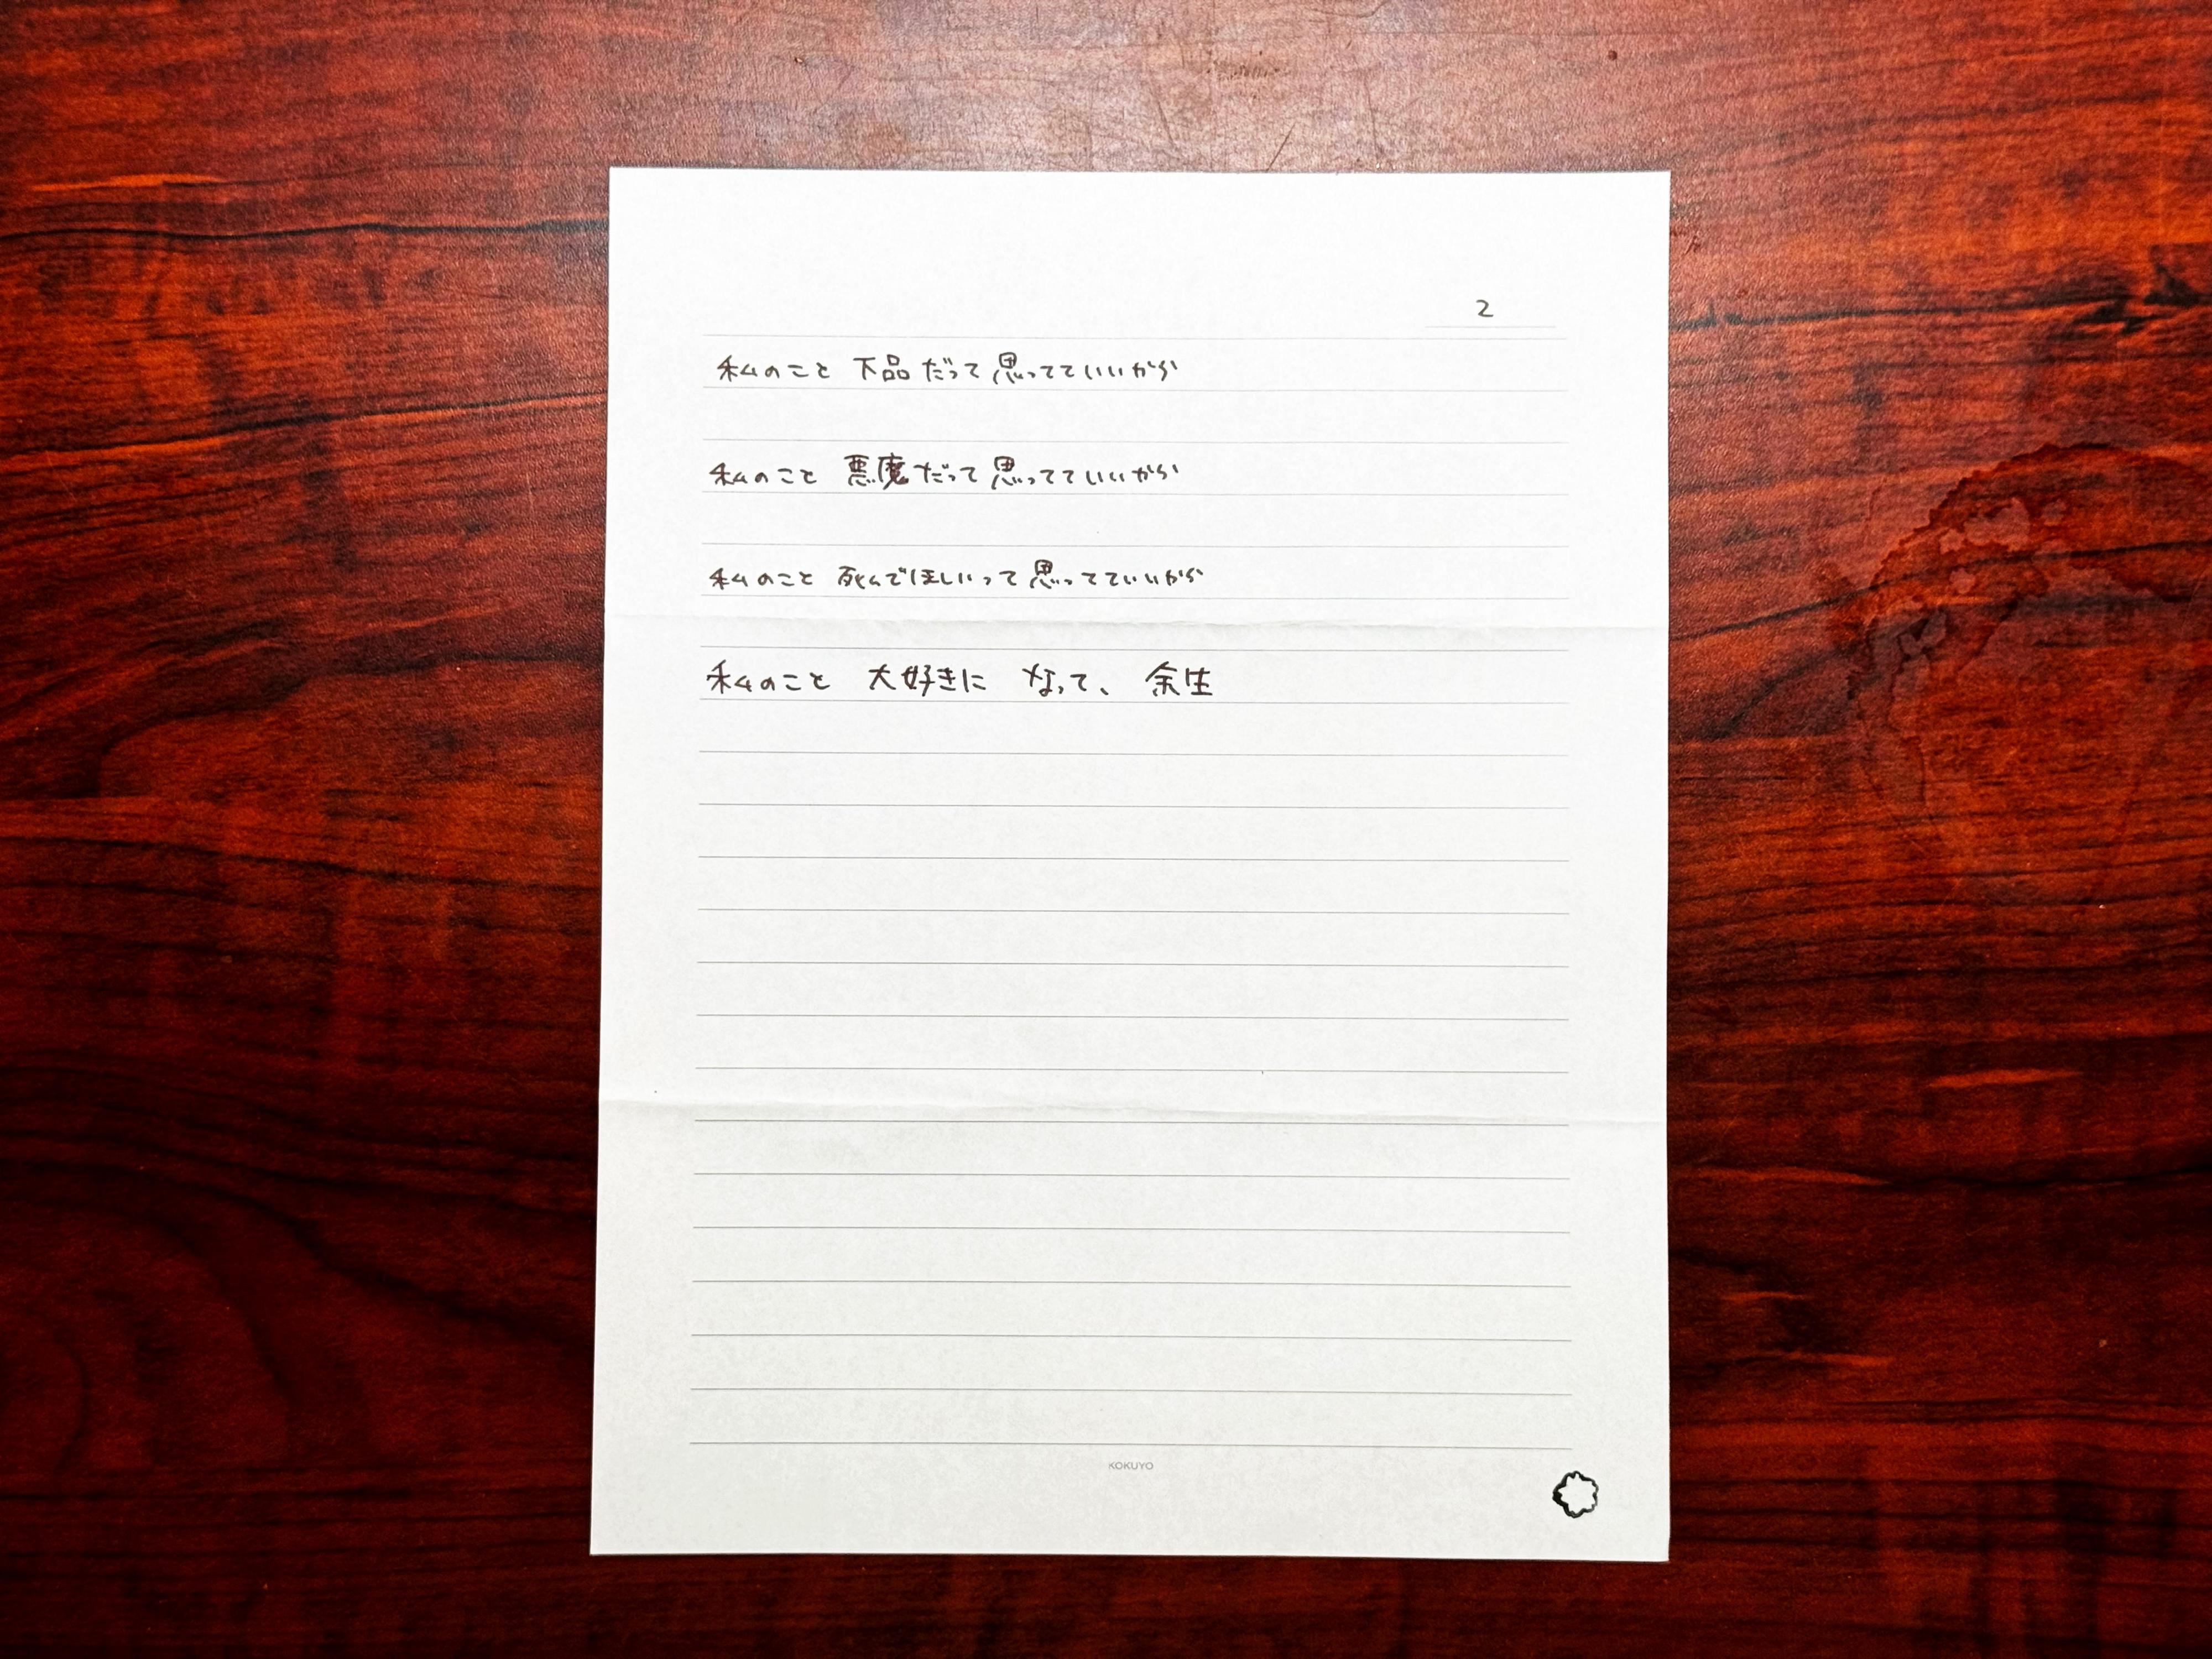 2
私のこと 下品だって思ってていいから
私のこと 悪魔だって思ってていいから
私のこと 死んでほしいって思ってていいから
私のこと 大好きに なって、 余生
KOKUYO